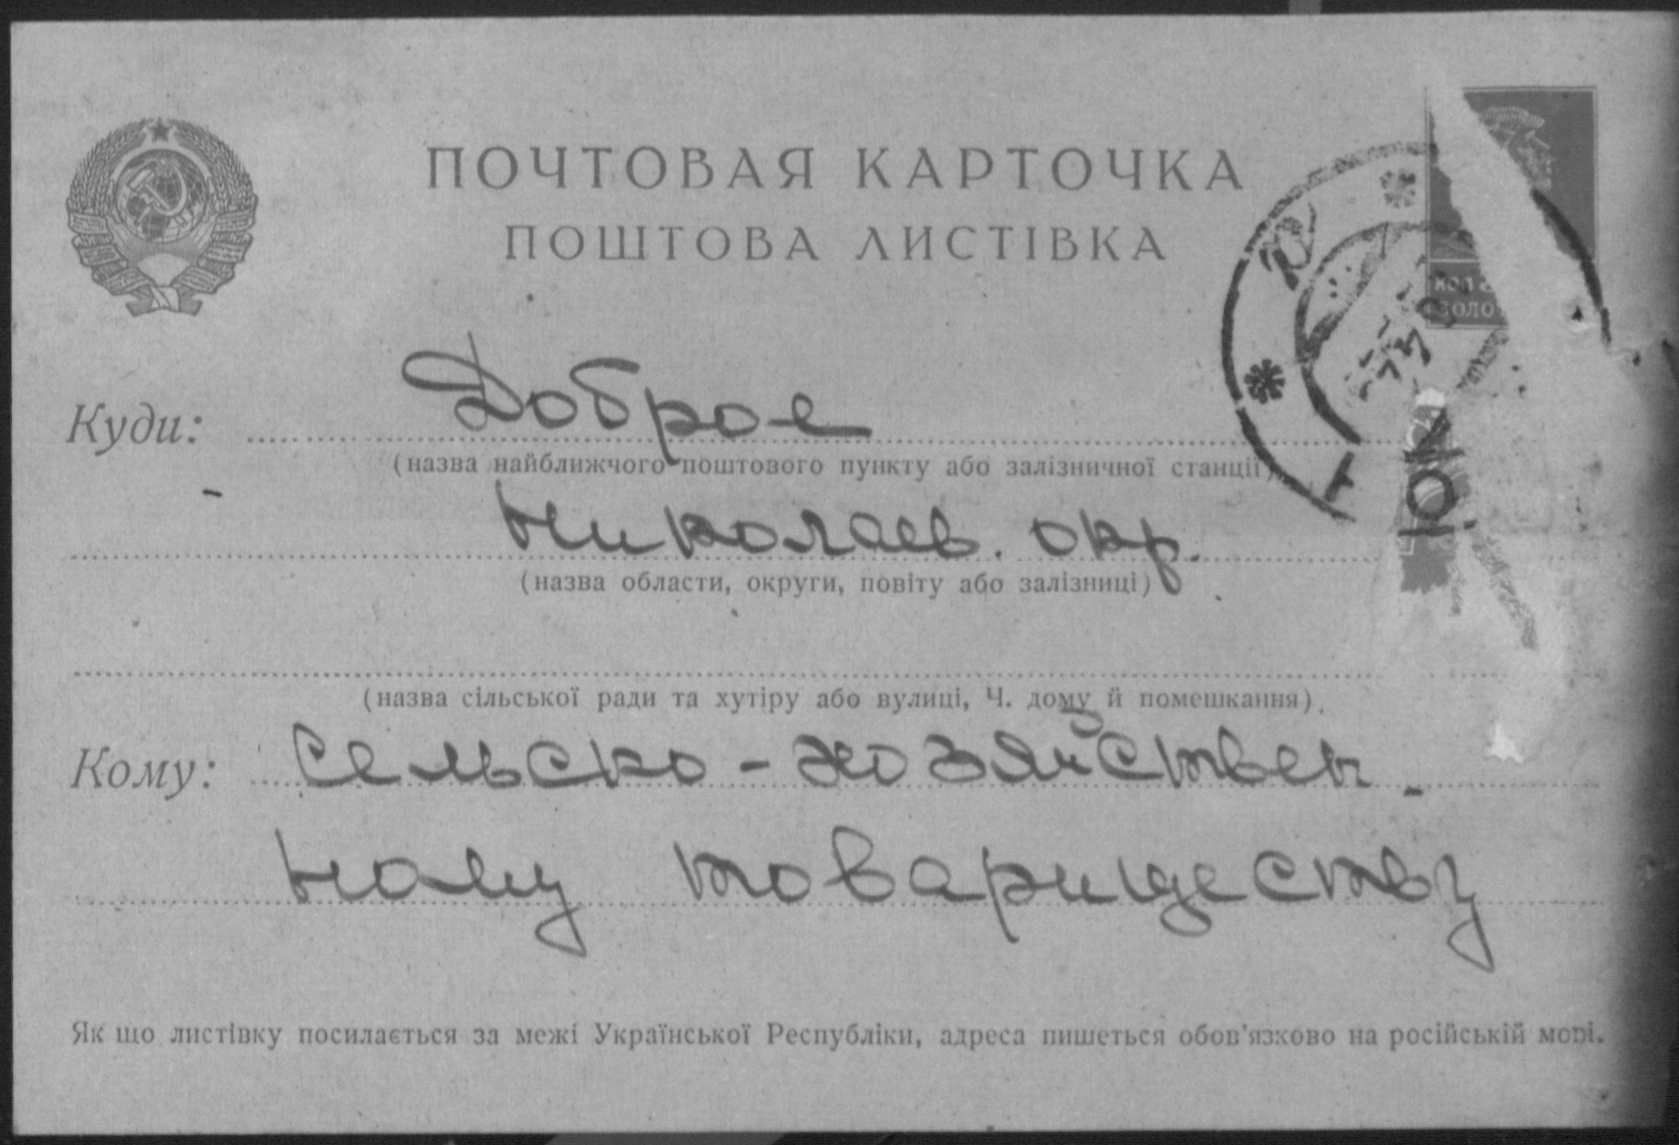 ПОЧТОВАЯ КАРТОЧКА
ПОШТОВА ЛИСТІВКА
коп
золо
Куди: Доброе
(назва найближчого поштового пункту або залізничної станції)
Николаев. окр.
(назва області, округи, повіту або залізниці)
(назва сільської ради та хутіру або вулиці, Ч. дому й помешкання)
Кому: Сельско-хозяйствен-
ному товариществу
Як що листівку посилається за межі Української Республіки, адреса пишеться обов'язково на російській мові.